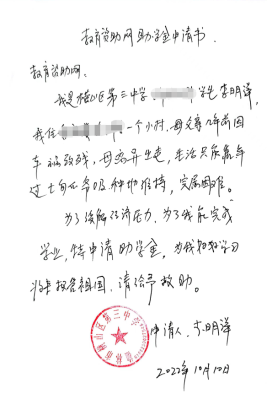 教育资助网助学金申请书
教育资助网:
我是稷山区第三中学 学生李明洋,
我住 一个小村,母父亲几年前因
车祸致残,母离异出走,生活只能靠年
过七旬 爷奶种地维持,实属困难。
为了缓解经济压力,为了我能完成
学业,特申请助学金,为我 学习
将来报答祖国,请给予救助。
申请人:李明洋
2022年10月10日
山区第三中学